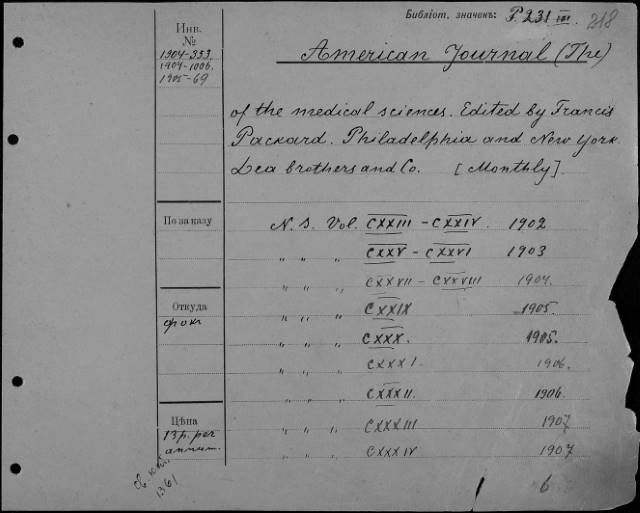 Библіот. значекъ: P.231 III. 218
Инв.
№
1904-333.
1904-1006.
1905-69
American Journal (The)
of the medical sciences. Edited by Francis
Packard. Philadelphia and New York.
Lea brothers and Co. [Monthly].
По заказу
N. S. Vol. CXXIII – CXXIV. 1902
„ „ „ CXXV – CXXVI 1903
„ „ „ CXXVII – CXXVIII 1904.
Откуда
„ „ „ CXXIX 1905
„ „ „ CXXX. 1905.
„ „ „ CXXXI 1906.
„ „ „ CXXXII. 1906
Цѣна
13 р. per
annum.
„ „ „ CXXXIII 1907
„ „ „ CXXXIV 1907
1361
6